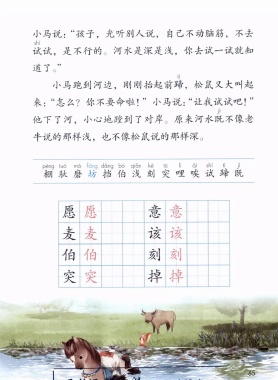 小马说：“孩子，光听别人说，自己不动脑筋，不去
shì
试试，是不行的。河水是深是浅，你去试一试就知
道了。”
tí
小马跑到河边，刚刚抬起前蹄，松鼠又大叫起
来：“怎么？你不要命啦！”小马说：“让我试试吧！”
jì
他下了河，小心地蹚到了对岸。原来河水既不像老
牛说的那样浅，也不像松鼠说的那样深。
péng tuó mò fáng dǎng bó qiǎn kè tū lī āi shì tí jì
棚 驮 磨 坊 挡 伯 浅 刻 突 哩 唉 试 蹄 既
愿 愿 意 意
麦 麦 该 该
伯 伯 刻 刻
突 突 掉 掉